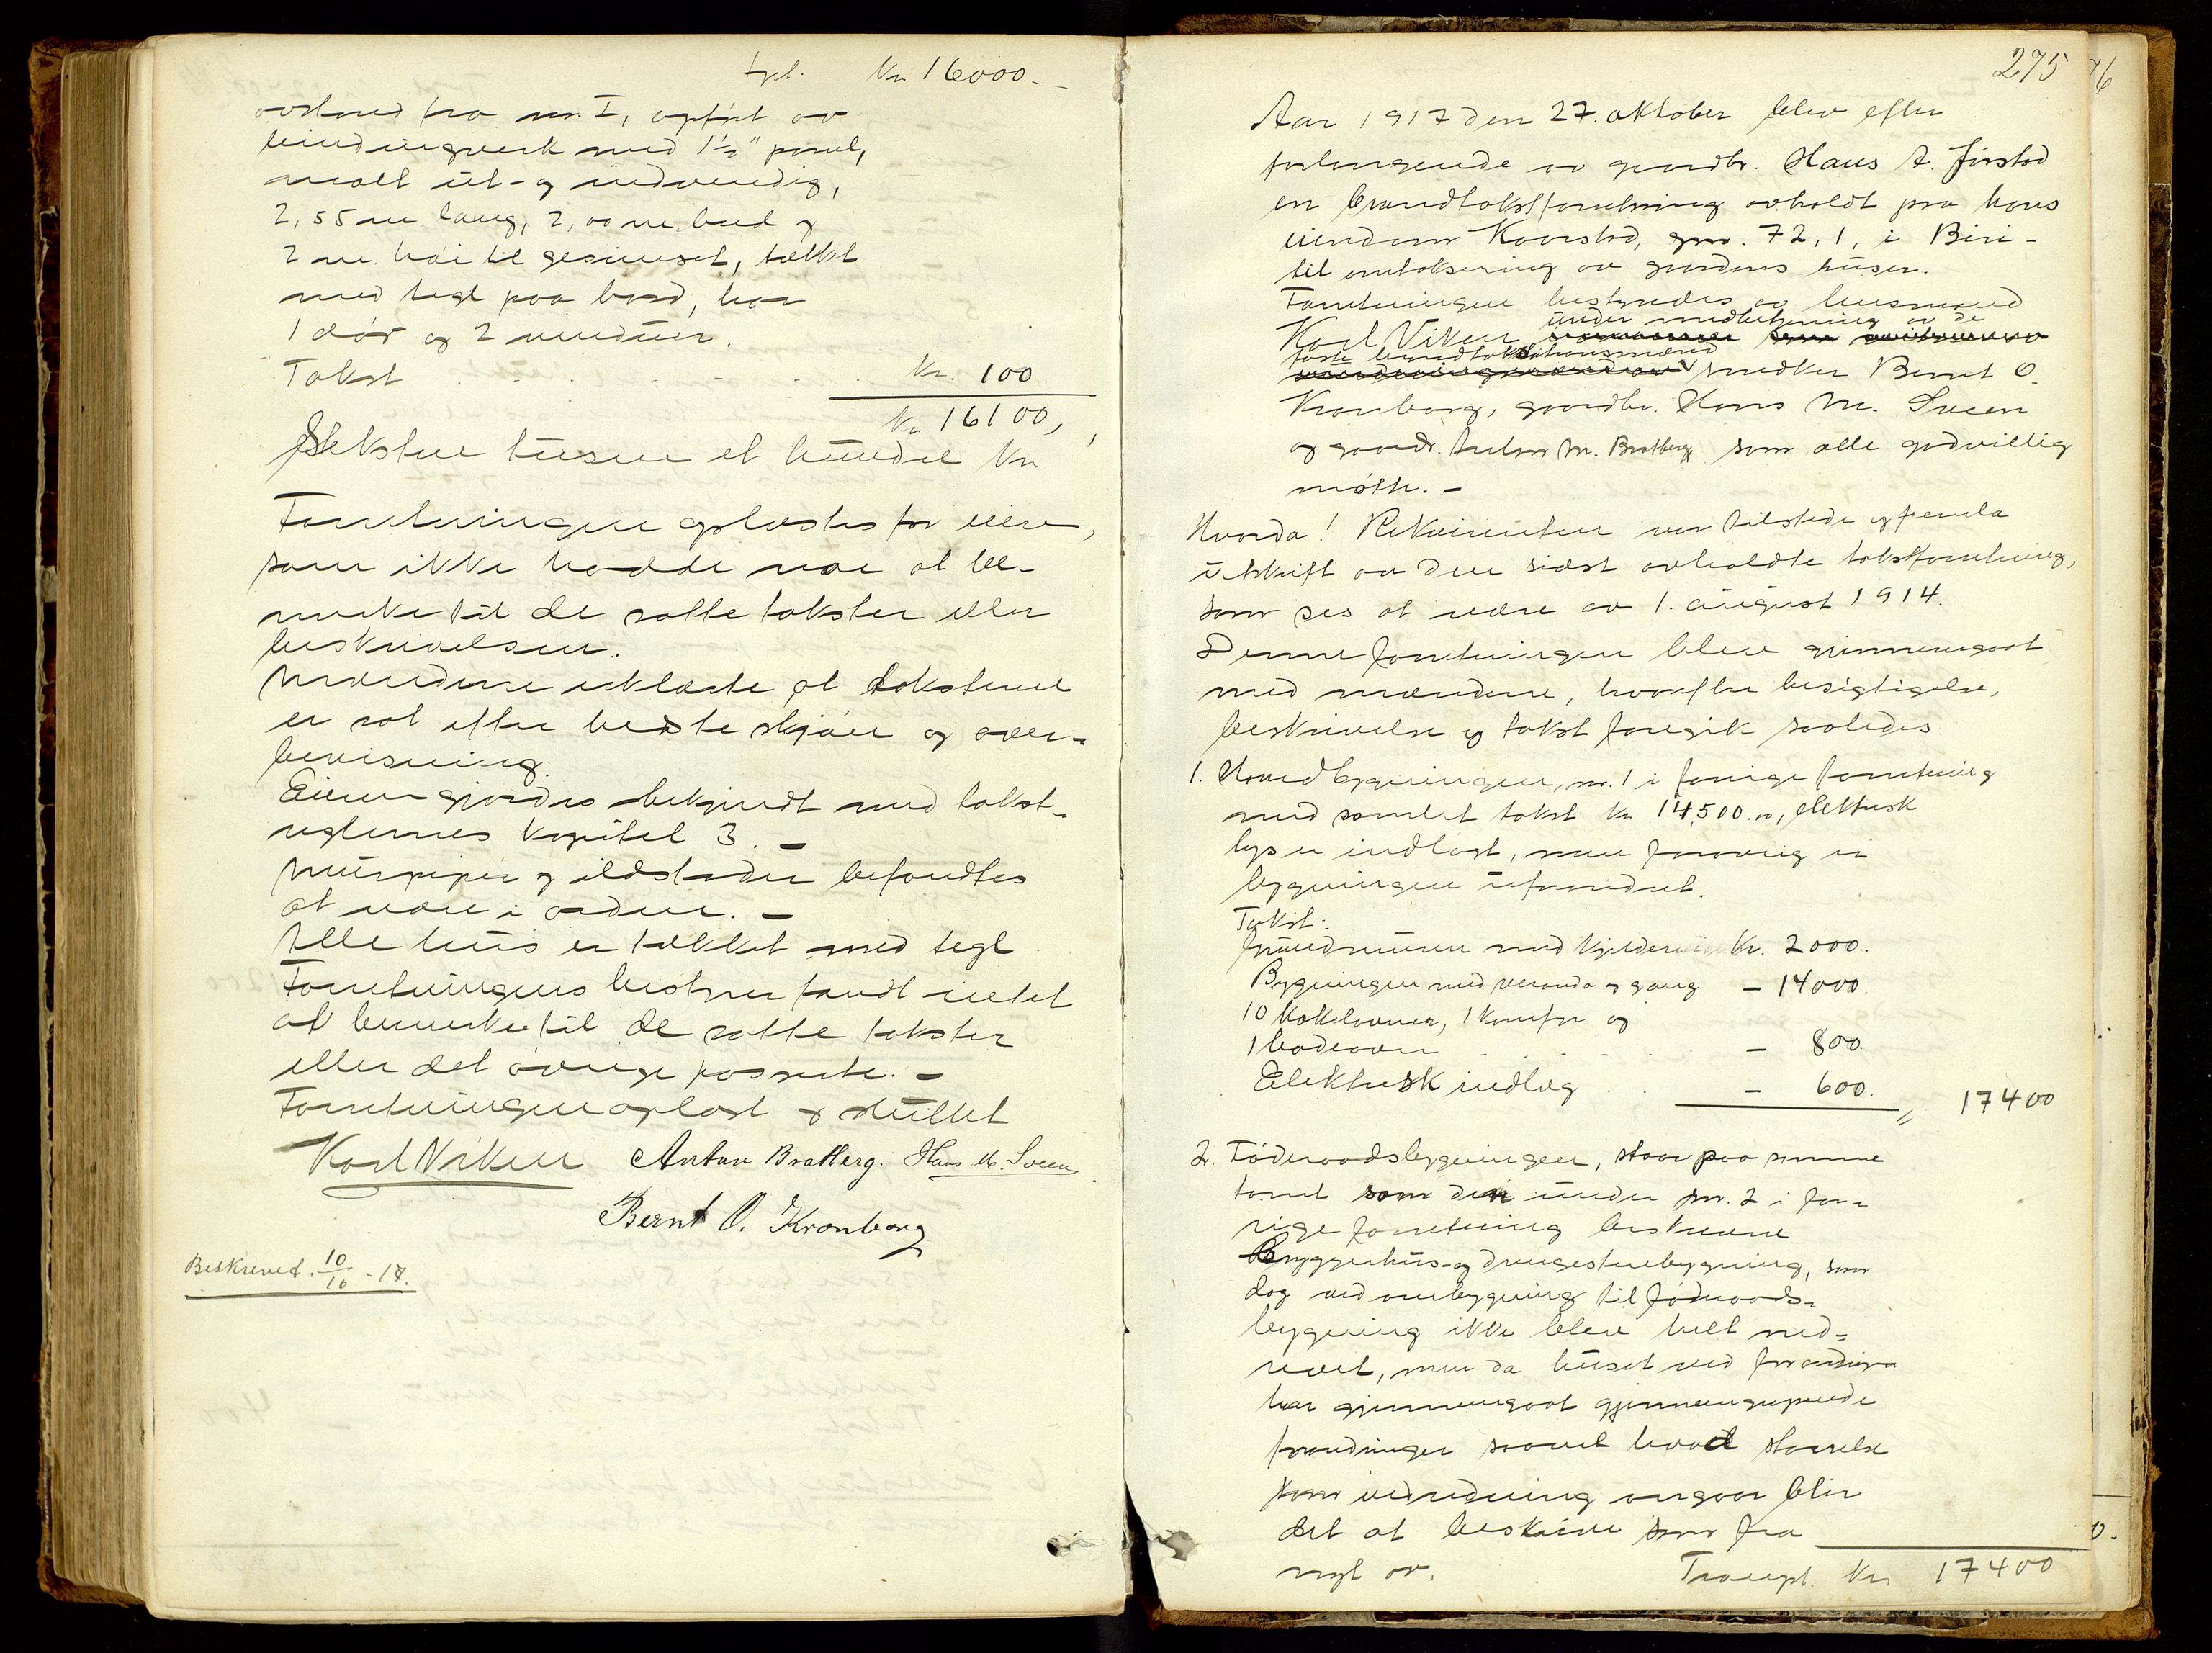 Trpt. Kr 16000.-
avstand fra nr. I, opført av
bindingverk med 1½" panel,
malt ut- og indvendig,
2,55 m. lang, 2,00 m. bred og
2 m. høi til gesimset, tækket
med tegl paa bord, har
1 dør og 2 vinduer.
Takst . . . . . . Kr. 100
Kr 16100,
Seksten tusen et hundre Kr.
Forretningen oplæstes for eieren,
som ikke hadde noe at be-
merke til de satte takster eller
beskrivelsen.
Mændene erklærte at taksterne
er sat efter bedste skjøn og over-
bevisning.
Eieren gjordes bekjendt med takst-
reglernes kapitel 3. -
Murpiper og ildsteder befandtes
at være i orden. -
Alle hus er tækket med tegl
Forretningens bestyrer fandt intet
at bemerke til de satte takster
eller det øvrige passerte. -
Forretningen oplæst og sluttet
Karl Viken Anton Bratberg. Hans M. Sveen
Bernt O. Kronborg
Beskrevet. 10/10 -17.
275
76
Aar 1917 den 27. oktober blev efter
forlangende av gaardbr. Hans A. Jøvstad
en brandtakstforretning avholdt paa hans
eiendom Kaarstad, gnr. 72, 1, i Biri -
til omtaksering av gaardens huser.
Forretningen bestyredes av lensmand
Karl Viken under medbetjening av de
faste brandtakstationsmænd
snedker Bernt O.
Kronborg, gaardbr. Hans M. Sveen
og gaardbr. Anton M. Bratberg som alle godvillig
møtte. -
Hvorda! Rekvirenten var tilstede og fremla
utskrift av den sidst avholdte takstforretning,
som ses at være av 1. august 1914.
Denne forretningen blev gjennemgaat
med mændene, hvorefter besigtigelse,
beskrivelse og takst foregik saaledes
1. Hovedbygningen, nr. 1 i forrige forretning
med samlet takst kr 14,500.00, elektrisk
lys er indlagt, men forøvrig er
bygningen uforandret.
Takst:
Grundmuren med kjelder Kr. 2000.
Bygningen med veranda og gang - 14000
10 kakelovner, 1 komfyr og
1 badeovn . . . . . - 800.
Elektrisk indlæg . . - 600. " 17400
2. Føderaadsbygningen, staar paa samme
tomt som den under nr. 2 i for-
rige forretning beskrevne
Bryggerhus- og drengestuebygning, som
dog ved ombygning til føderaads-
bygning ikke blev helt ned-
revet, men da huset ved forandringen
har gjennemgaat gjennemgripende
forandringer saavel hvad størrelse
som indredning angaar blir
det at beskrive som fra
nyt av.
Transpt. Kr 17400